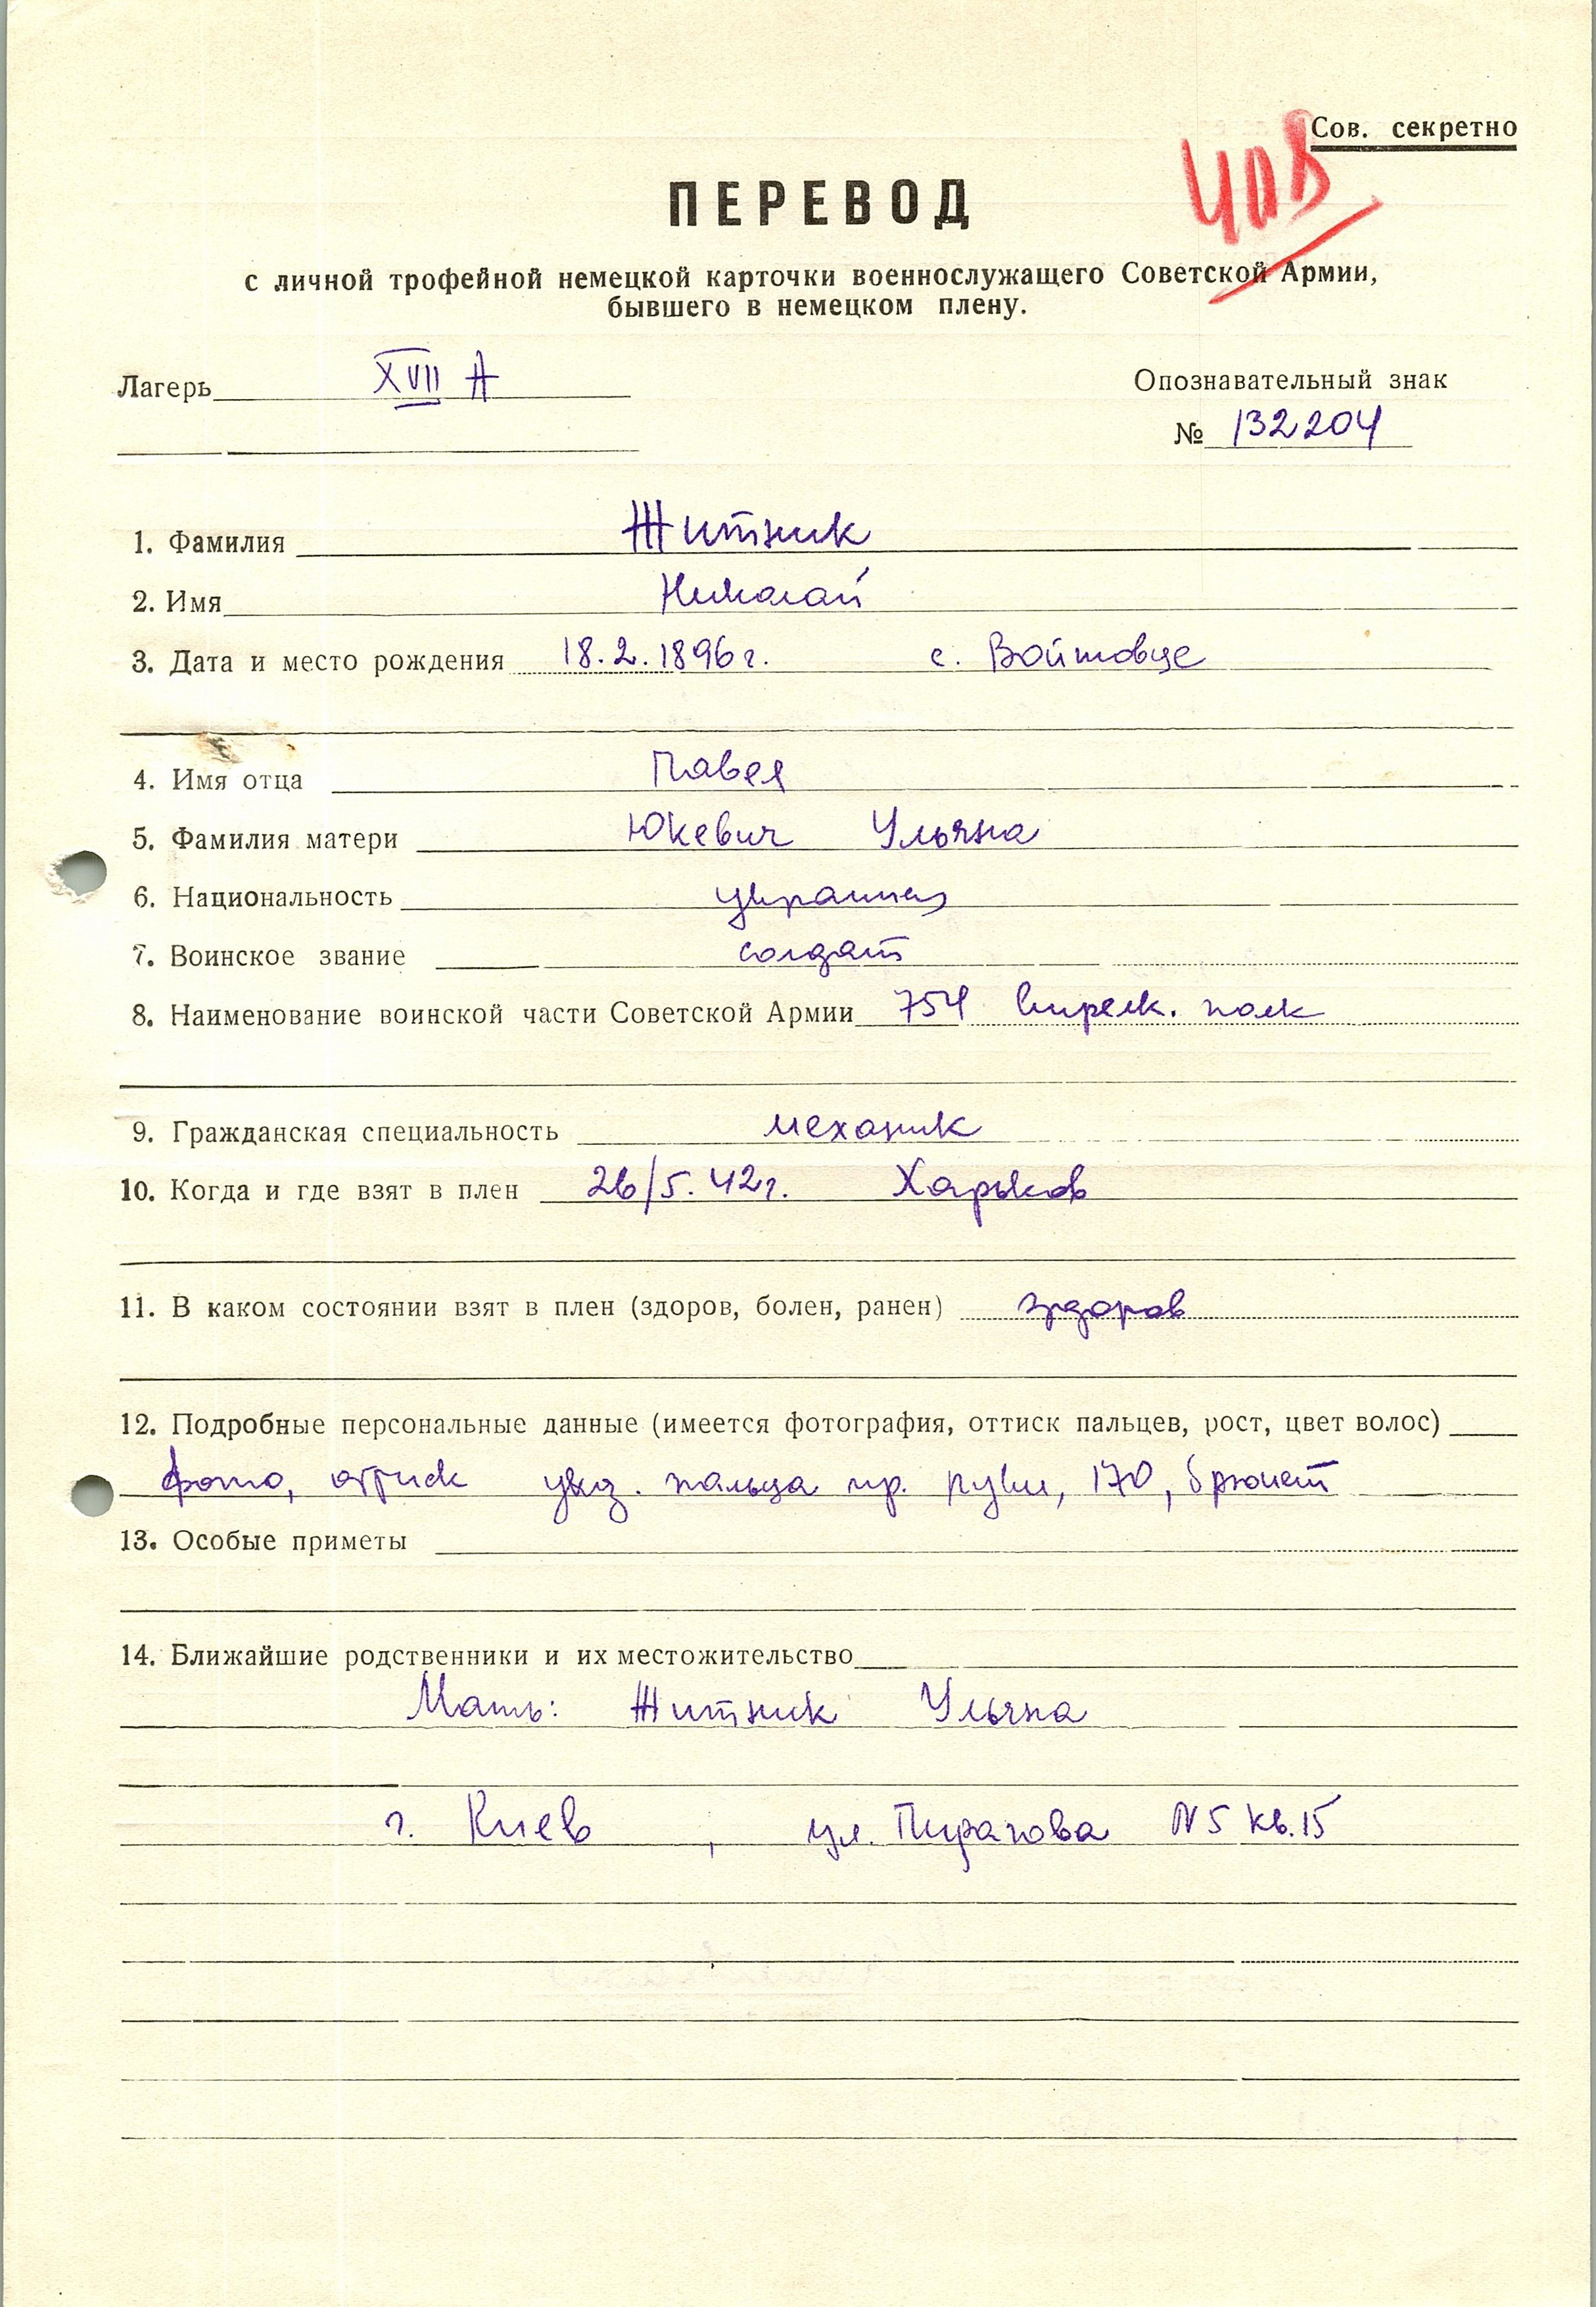 Сов. секретно
ЧОВ
ПЕРЕВОД
с личной трофейной немецкой карточки военнослужащего Советской Армии,
бывшего в немецком плену.
Лагерь XVII A
Опознавательный знак
№ 132204
1. Фамилия Житник
2. Имя Николай
3. Дата и место рождения 18.2.1896г. с. Войтовце
4. Имя отца Павел
5. Фамилия матери Юкевич Ульяна
6. Национальность украинец
7. Воинское звание солдат
8. Наименование воинской части Советской Армии 754 стрелк. полк
9. Гражданская специальность механик
10. Когда и где взят в плен 26/5.42г. Харьков
11. В каком состоянии взят в плен (здоров, болен, ранен) здоров
12. Подробные персональные данные (имеется фотография, оттиск пальцев, рост, цвет волос)
фото, оттиск указ. пальца пр. руки, 170, брюнет
13. Особые приметы
14. Ближайшие родственники и их местожительство
Мать: Житник Ульяна
г. Киев, ул. Пирагова N5 кв.15